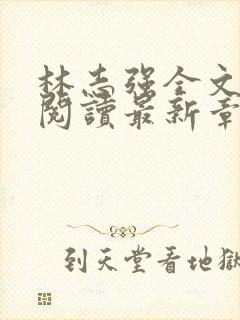 林志强全文
閱讀最新章
到天堂看地獄